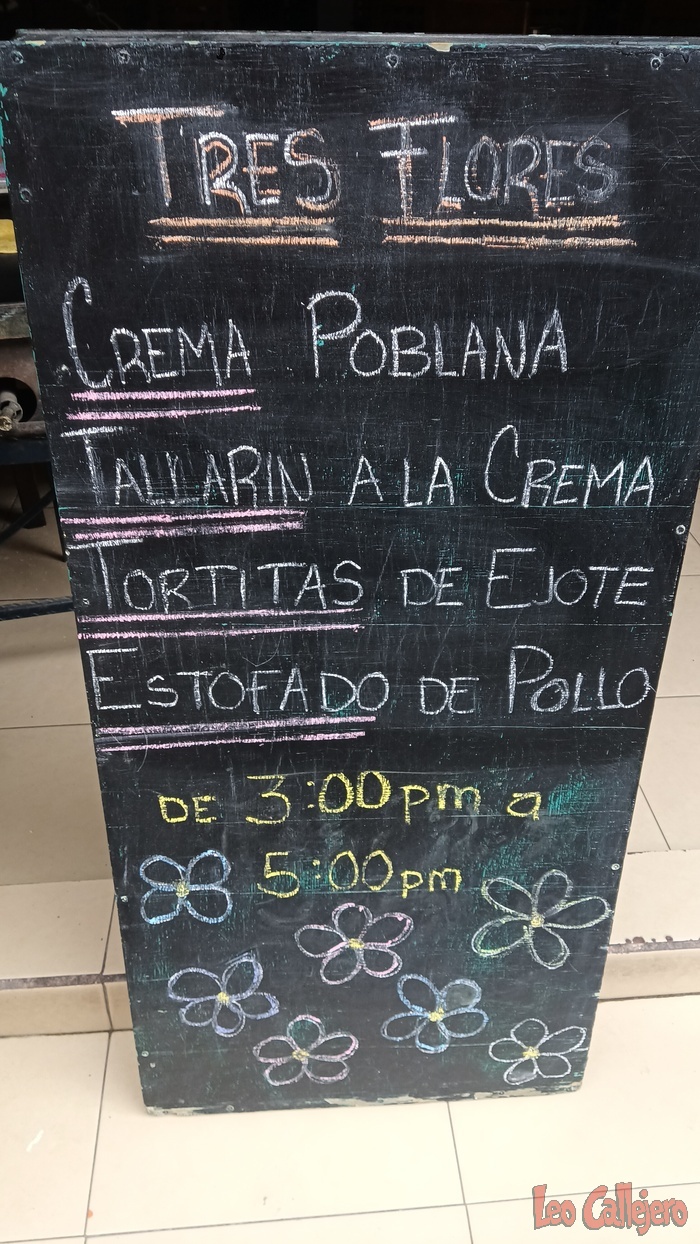 TRES FLORES
CREMA POBLANA
TALLARIN A LA CREMA
TORTITAS DE EJOTE
ESTOFADO DE POLLO
DE 3:00pm a
5:00pm
Leo Callejero